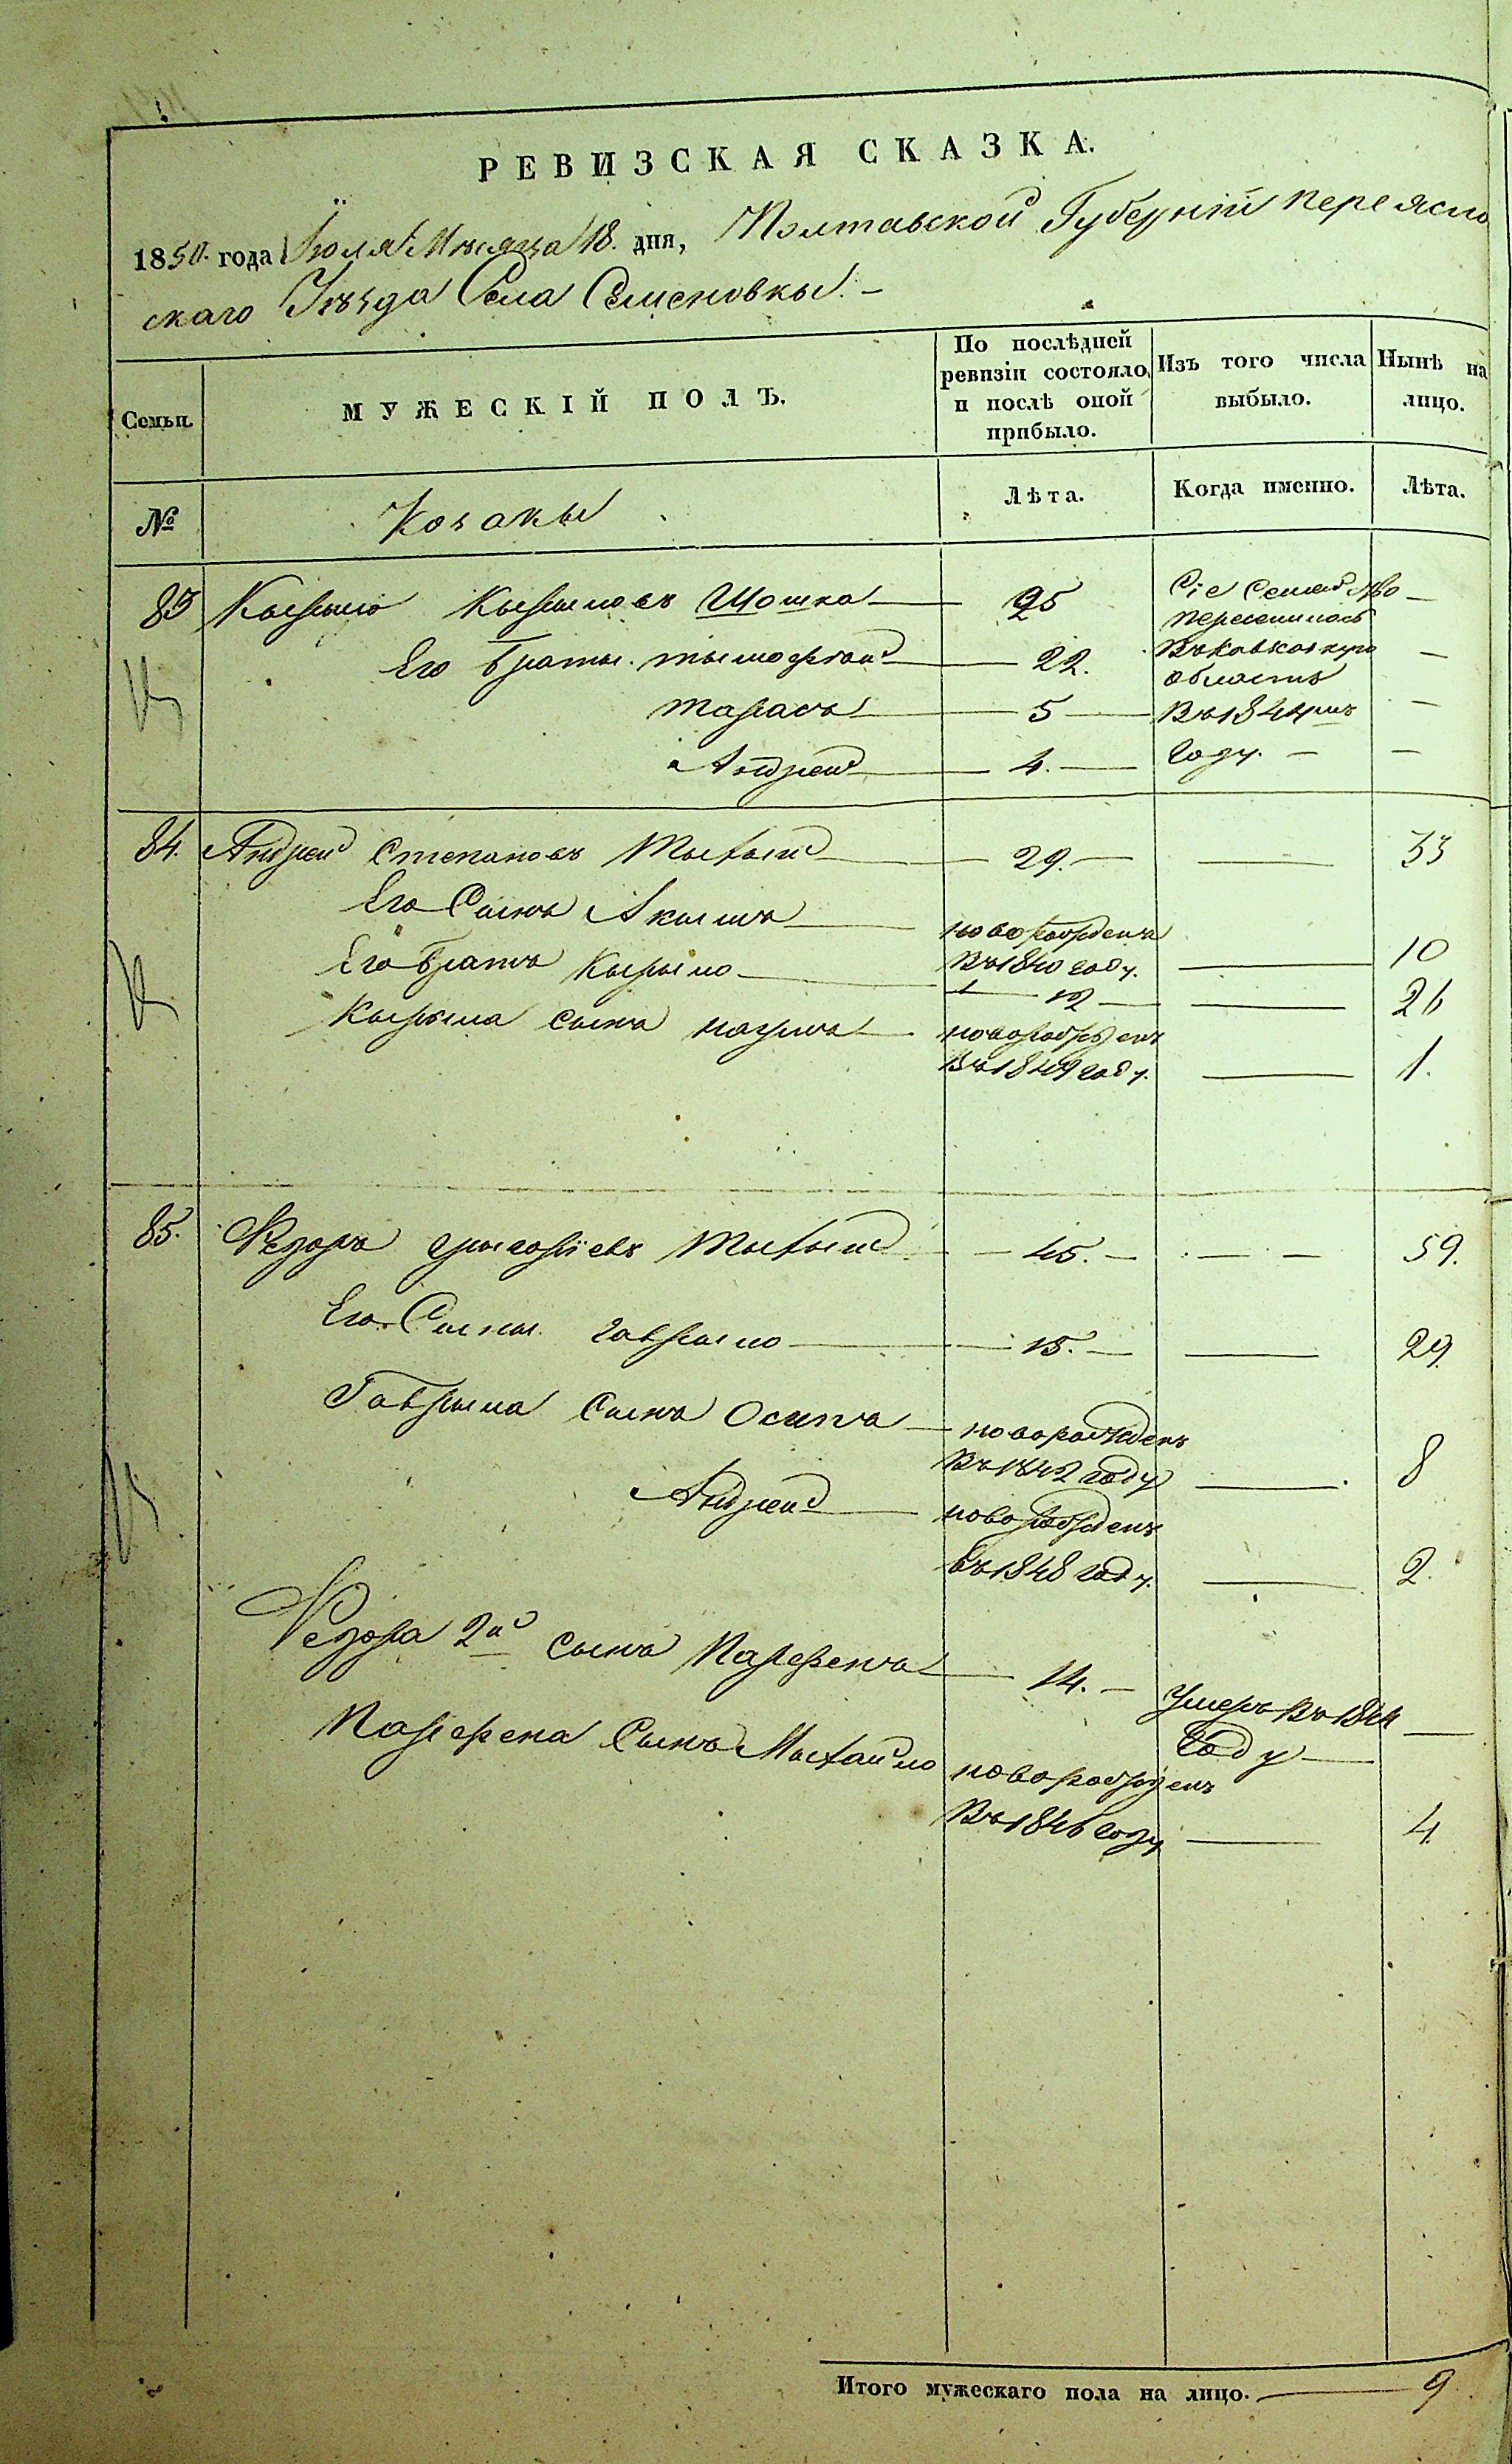 РЕВИЗСКАЯ СКАЗКА.
1850. года Іюля Мѣсяца 18. дня, Полтавской Губерніи Переясло
скаго Уѣзда Села Семеновкы. –
Семьи.
МУЖЕСКІЙ ПОЛЪ.
По послѣдней ревизіи состояло, и послѣ оной прибыло.
Изъ того числа выбыло.
Нынѣ на лицо.
№
Козакы
Лѣта.
Когда именно.
Лѣта.
83 Кырыло Кырыловъ Шошка — 25 Сіе Семейство —
переселилось
Его Браты. Тымофей — 22. Въ Кавказкую —
область
Тарасъ — 5 — Въ 1844мъ —
Андрей — 4. — году. — —
84. Андрей Степановъ Тыхый — 29. — — 33
Его Сынъ Акымъ — новорожденъ
Въ 1840 году. — 10
Его Братъ Кырыло — 12 — — 26
Кырыла сынъ Наумъ — новорожденъ
Въ 1849 году. — 1.
85. Федоръ Грыгоріевъ Тыхый — 45. — — 59.
Его Сыны. Гаврыло — 15. — — 29.
Гаврыла Сынъ Осипъ — новорожденъ
Въ 1842 году — 8
Андрей — новорожденъ
въ 1848 году. — 2.
Федора 2й сынъ Парфенъ — 14. — Умеръ Въ 1844 —
году —
Парфена Сынъ Мыхайло новорожденъ
Въ 1846 году — 4.
Итого мужескаго пола на лицо. — 9